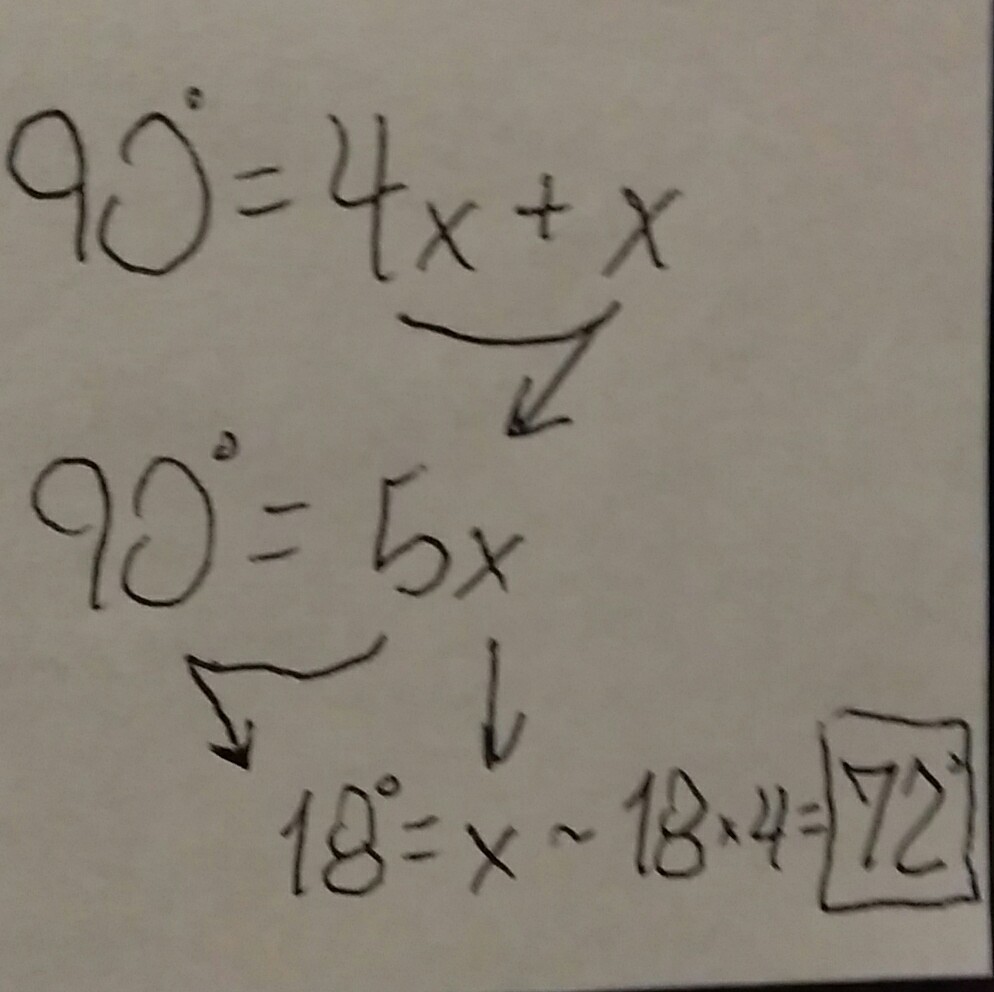 90° = 4x + x
90° = 5x
18° = x ~ 18·4 = 72°